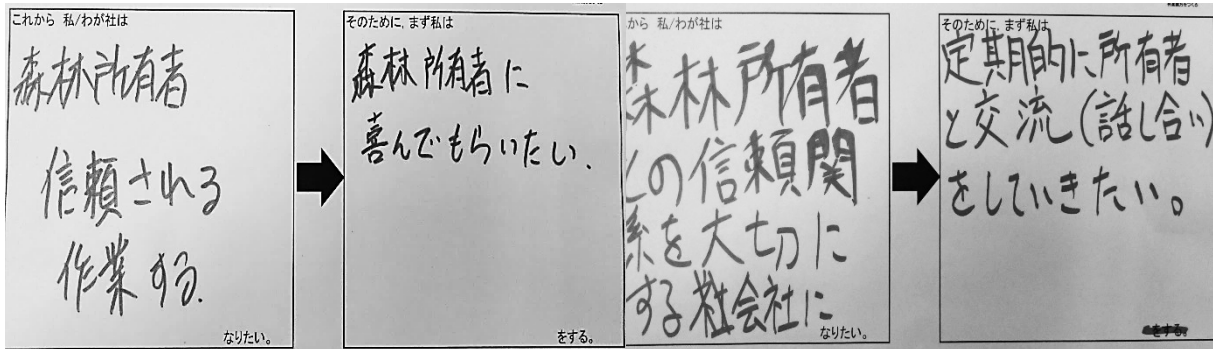 これから 私/わが社は
森林所有者
信頼される
作業する.
なりたい。
そのために、まず私は
森林所有者に
喜んでもらいたい.
をする。
から 私/わが社は
森林所有者
との信頼関
係を大切に
する会社に
なりたい。
そのために、まず私は
定期的に所有者
と交流(話し合い)
をしていきたい。